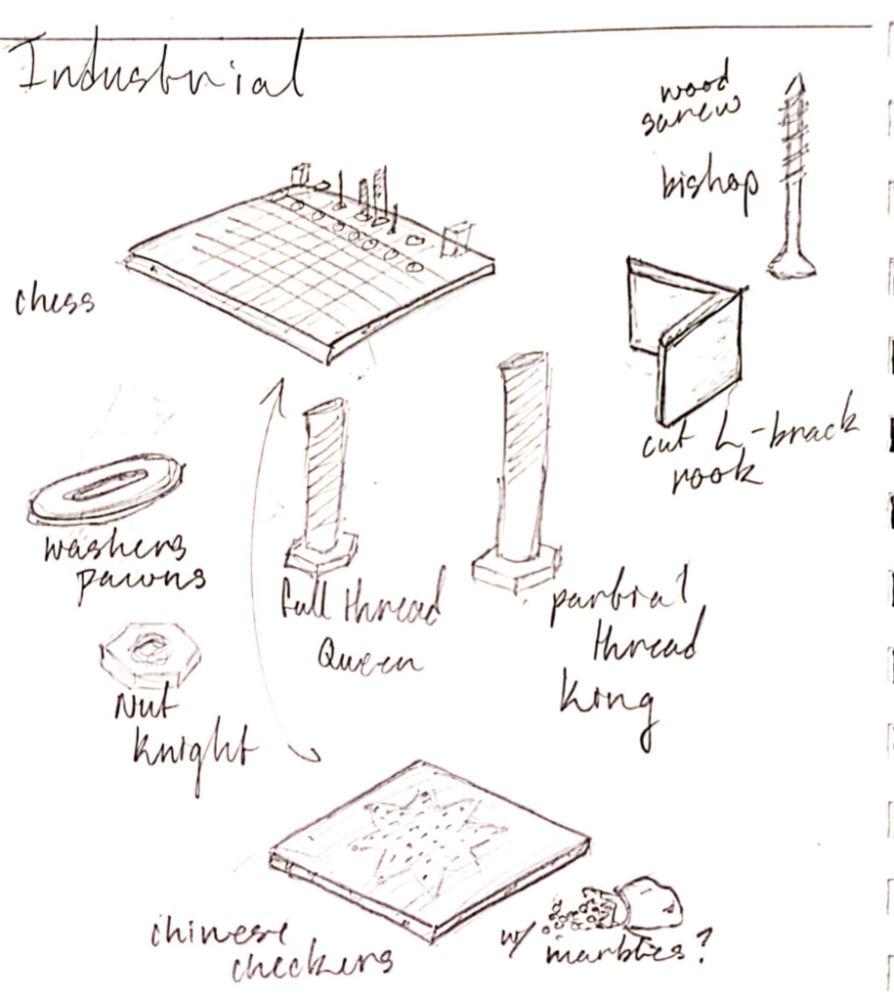 Industrial
wood
screw
bishop
chess
cut L-brack
rook
washers
pawns
full thread
Queen
partial
thread
King
Nut
Knight
chinese
checkers
w/ marbles?